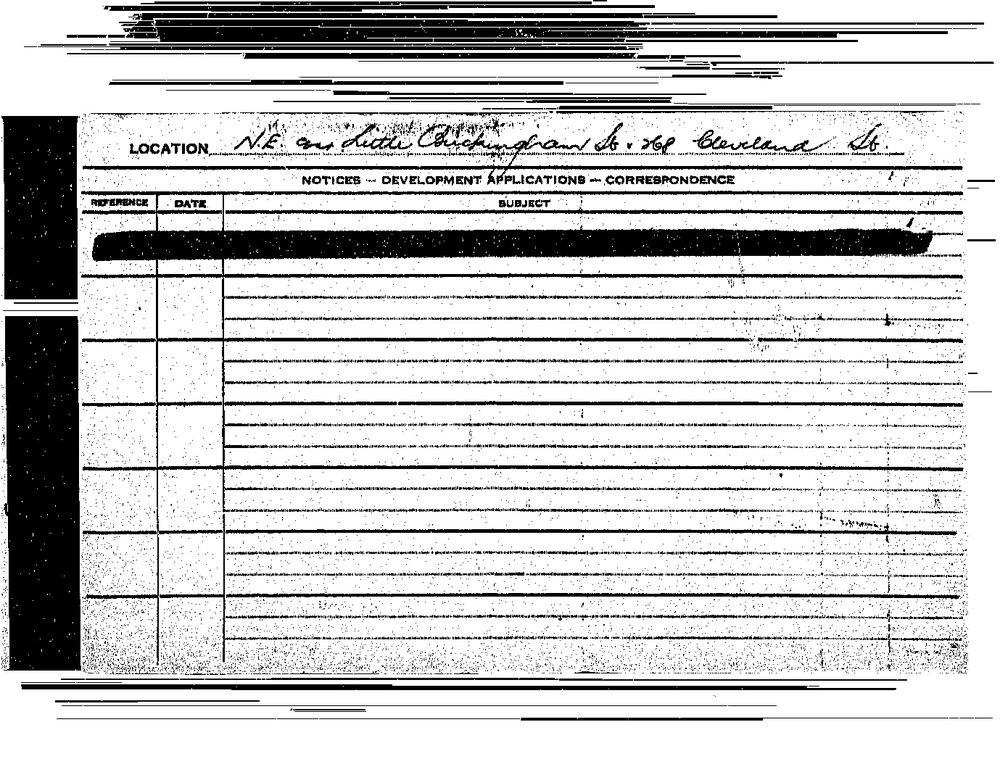 LOCATION N.E. cnr Little Buckingham St. & 268 Cleveland St.
NOTICES — DEVELOPMENT APPLICATIONS — CORRESPONDENCE
REFERENCE DATE SUBJECT